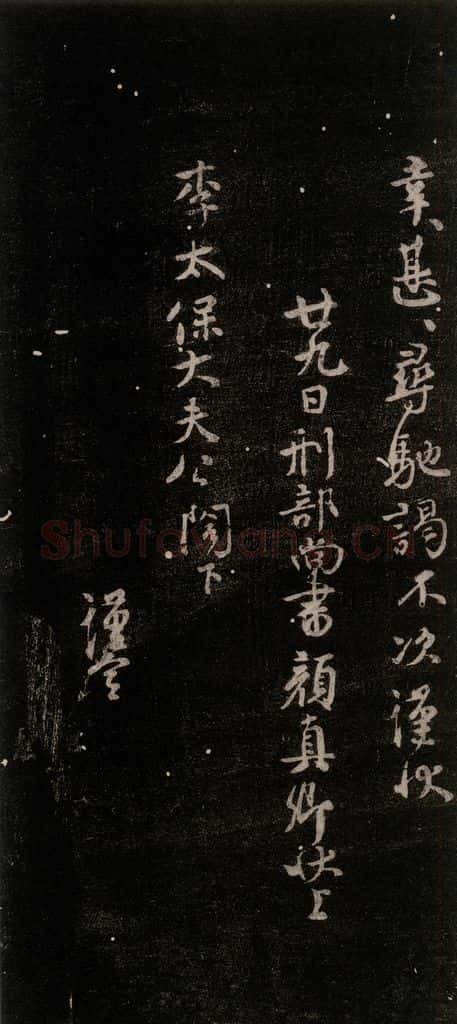 幸甚、甚、尋馳謁不次謹狀
廿九日刑部尚書顏真卿狀上
李太保大夫公閣下
謹空
Shufawang.cn